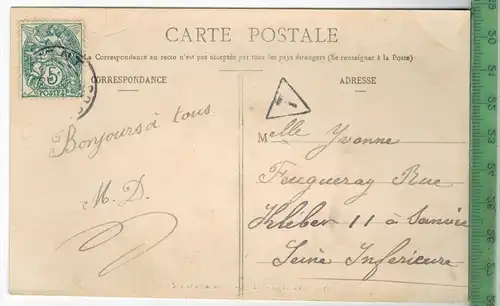 CARTE POSTALE
La Correspondance au recto n'est pas acceptée par tous les pays étrangers (Se renseigner à la Poste)
CORRESPONDANCE
ADRESSE
5
POSTES
T
Bonjours à tous
M. D.
Melle Yvonne
Feugueray Rue
Kléber 11 à Sanvic
Seine Inférieure